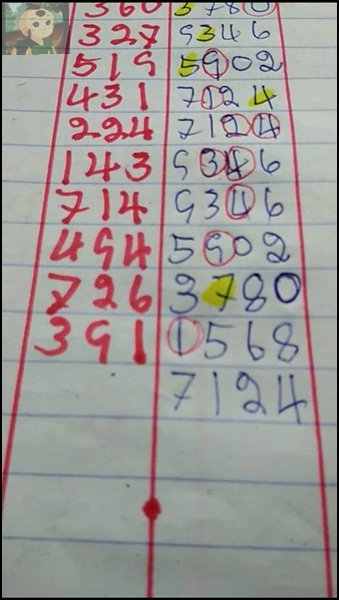 360 3780
327 9346
519 5902
431 7124
224 7124
143 9346
714 9346
494 5902
726 3780
391 1568
7124